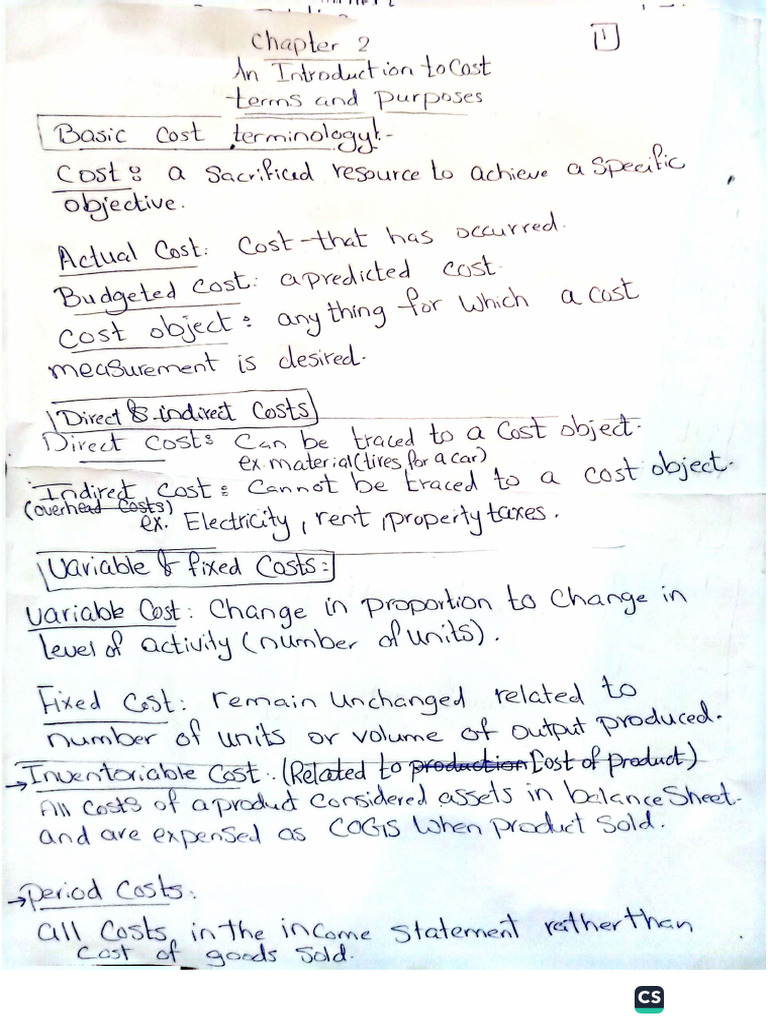 1
Chapter 2
An Introduction to Cost
terms and purposes
Basic Cost terminology:-
Cost: a sacrificed resource to achieve a specific
objective.
Actual Cost: Cost that has occurred.
Budgeted Cost: a predicted cost.
Cost object: any thing for which a cost
measurement is desired.
Direct & indirect Costs
Direct Cost: Can be traced to a Cost object.
ex. material (tires for a car)
Indirect Cost: Cannot be traced to a cost object.
(overhead costs)
ex. Electricity, rent, property taxes.
Variable & fixed Costs:
Variable Cost: Change in proportion to change in
level of activity (number of units).
Fixed Cost: remain unchanged related to
number of units or volume of output produced.
→ Inventoriable Cost: (Related to production Cost of product)
All costs of a product considered assets in balance sheet
and are expensed as COGS when product sold.
→ Period Costs:
all costs in the income statement rather than
cost of goods sold.
CS